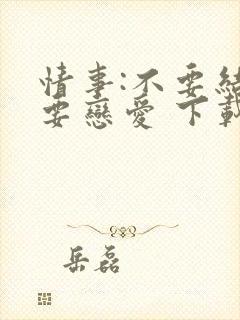 情事:不要結
要戀愛 下載
岳磊